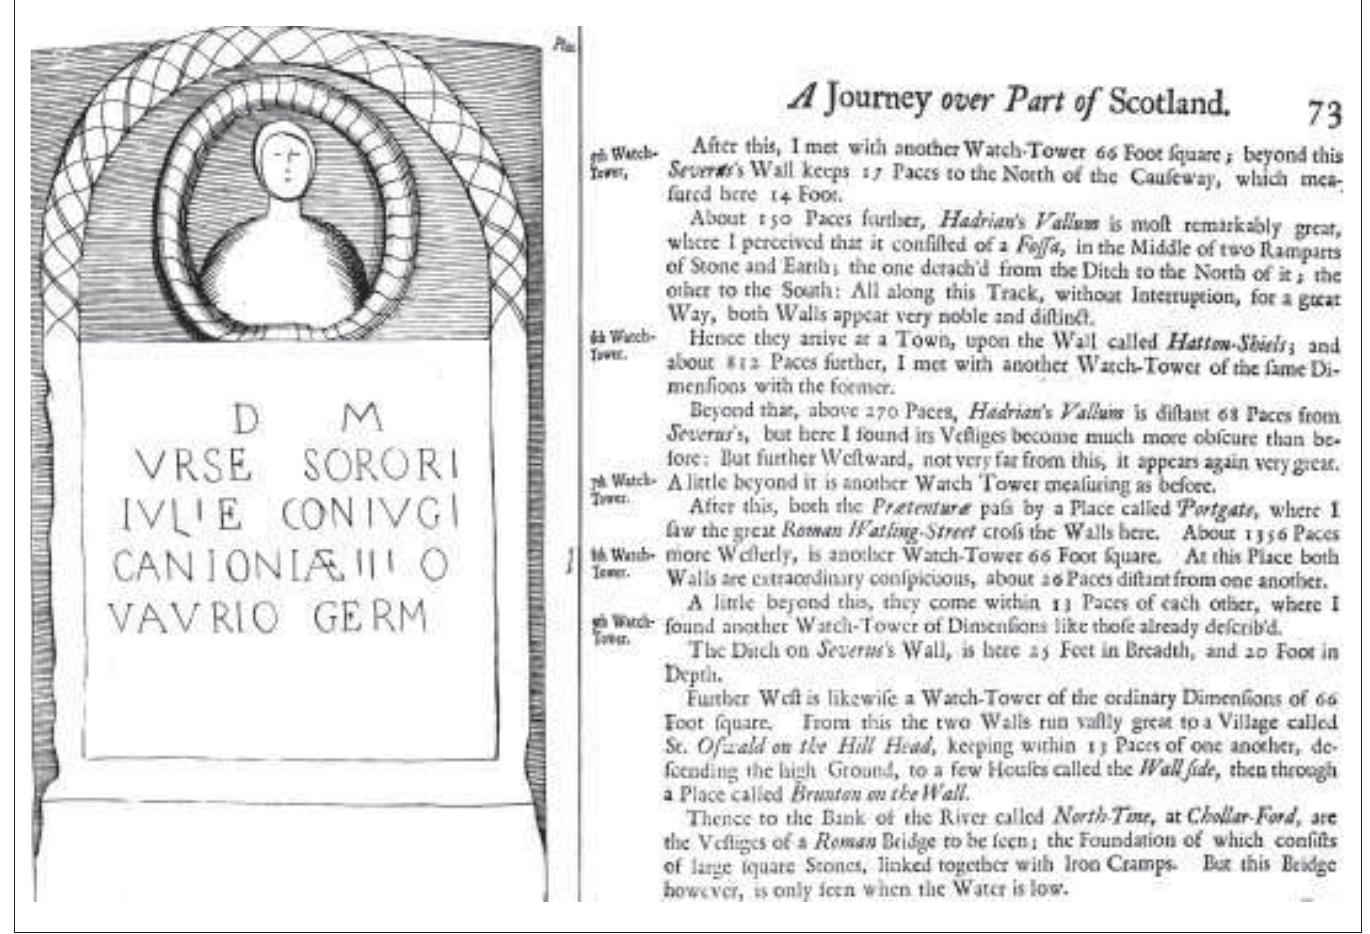 D M
VRSE SORORI
IVLIE CONIVGI
CANIONIÆ IIII O
VAVRIO GERM
A Journey over Part of Scotland. 73
After this, I met with another Watch-Tower 66 Foot ſquare; beyond this
Severus's Wall keeps 17 Paces to the North of the Cauſeway, which mea-
ſured here 14 Foot.
Watch-
Tower,
About 150 Paces further, Hadrian's Vallum is moſt remarkably great,
where I perceived that it conſiſted of a Foſſa, in the Middle of two Ramparts
of Stone and Earth; the one detach'd from the Ditch to the North of it; the
other to the South: All along this Track, without Interruption, for a great
Way, both Walls appear very noble and diſtinct.
6th Watch-
Tower.
Hence they arrive at a Town, upon the Wall called Hatton-Shiels; and
about 812 Paces further, I met with another Watch-Tower of the ſame Di-
menſions with the former.
Beyond that, above 270 Paces, Hadrian's Vallum is diſtant 68 Paces from
Severus's, but here I found its Veſtiges become much more obſcure than be-
fore: But further Weſtward, not very far from this, it appears again very great.
7th Watch-
Tower.
A little beyond it is another Watch Tower meaſuring as before.
After this, both the Prætenturæ paſs by a Place called Portgate, where I
ſaw the great Roman Watling-Street croſs the Walls here. About 1356 Paces
8th Watch-
Tower.
more Weſterly, is another Watch-Tower 66 Foot ſquare. At this Place both
Walls are extraordinary conſpicuous, about 26 Paces diſtant from one another.
A little beyond this, they come within 13 Paces of each other, where I
9th Watch-
Tower.
found another Watch-Tower of Dimenſions like thoſe already deſcrib'd.
The Ditch on Severus's Wall, is here 25 Feet in Breadth, and 20 Foot in
Depth.
Further Weſt is likewiſe a Watch-Tower of the ordinary Dimenſions of 66
Foot ſquare. From this the two Walls run vaſtly great to a Village called
St. Oſwald on the Hill Head, keeping within 13 Paces of one another, de-
ſcending the high Ground, to a few Houſes called the Wall ſide, then through
a Place called Brunton on the Wall.
Thence to the Bank of the River called North-Tine, at Chollar-Ford, are
the Veſtiges of a Roman Bridge to be ſeen; the Foundation of which conſiſts
of large ſquare Stones, linked together with Iron Cramps. But this Bridge
however, is only ſeen when the Water is low.